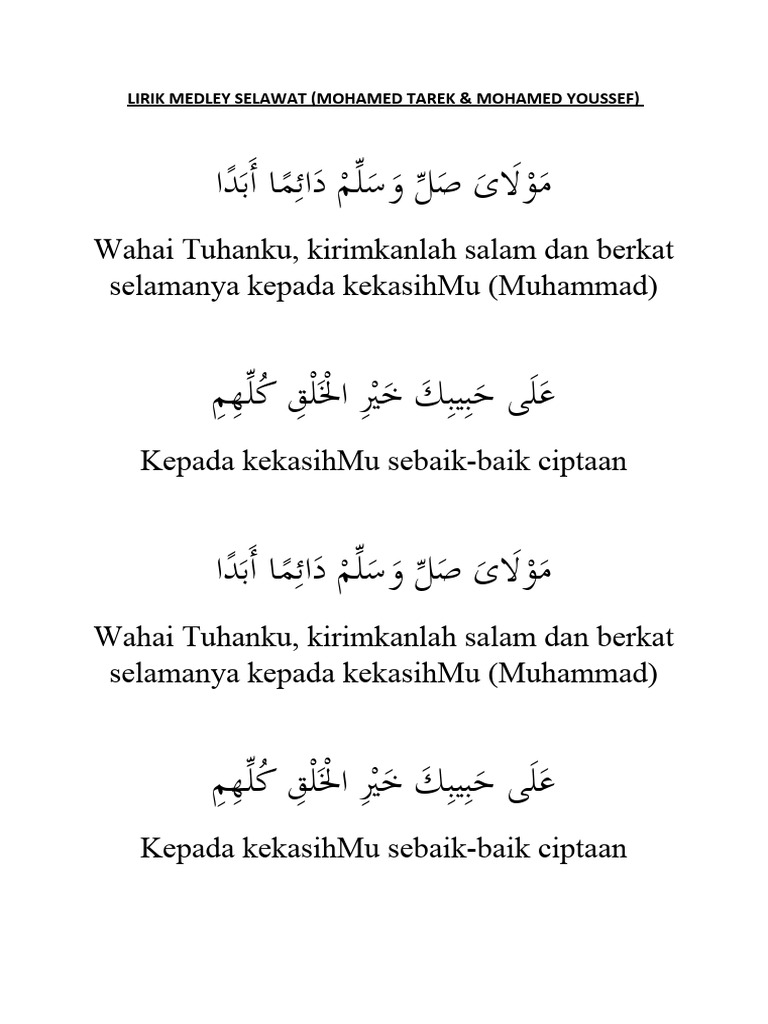 LIRIK MEDLEY SELAWAT (MOHAMED TAREK & MOHAMED YOUSSEF)
مَوْلَايَ صَلِّ وَسَلِّمْ دَائِمًا أَبَدًا
Wahai Tuhanku, kirimkanlah salam dan berkat
selamanya kepada kekasihMu (Muhammad)
عَلَى حَبِيبِكَ خَيْرِ الْخَلْقِ كُلِّهِمِ
Kepada kekasihMu sebaik-baik ciptaan
مَوْلَايَ صَلِّ وَسَلِّمْ دَائِمًا أَبَدًا
Wahai Tuhanku, kirimkanlah salam dan berkat
selamanya kepada kekasihMu (Muhammad)
عَلَى حَبِيبِكَ خَيْرِ الْخَلْقِ كُلِّهِمِ
Kepada kekasihMu sebaik-baik ciptaan